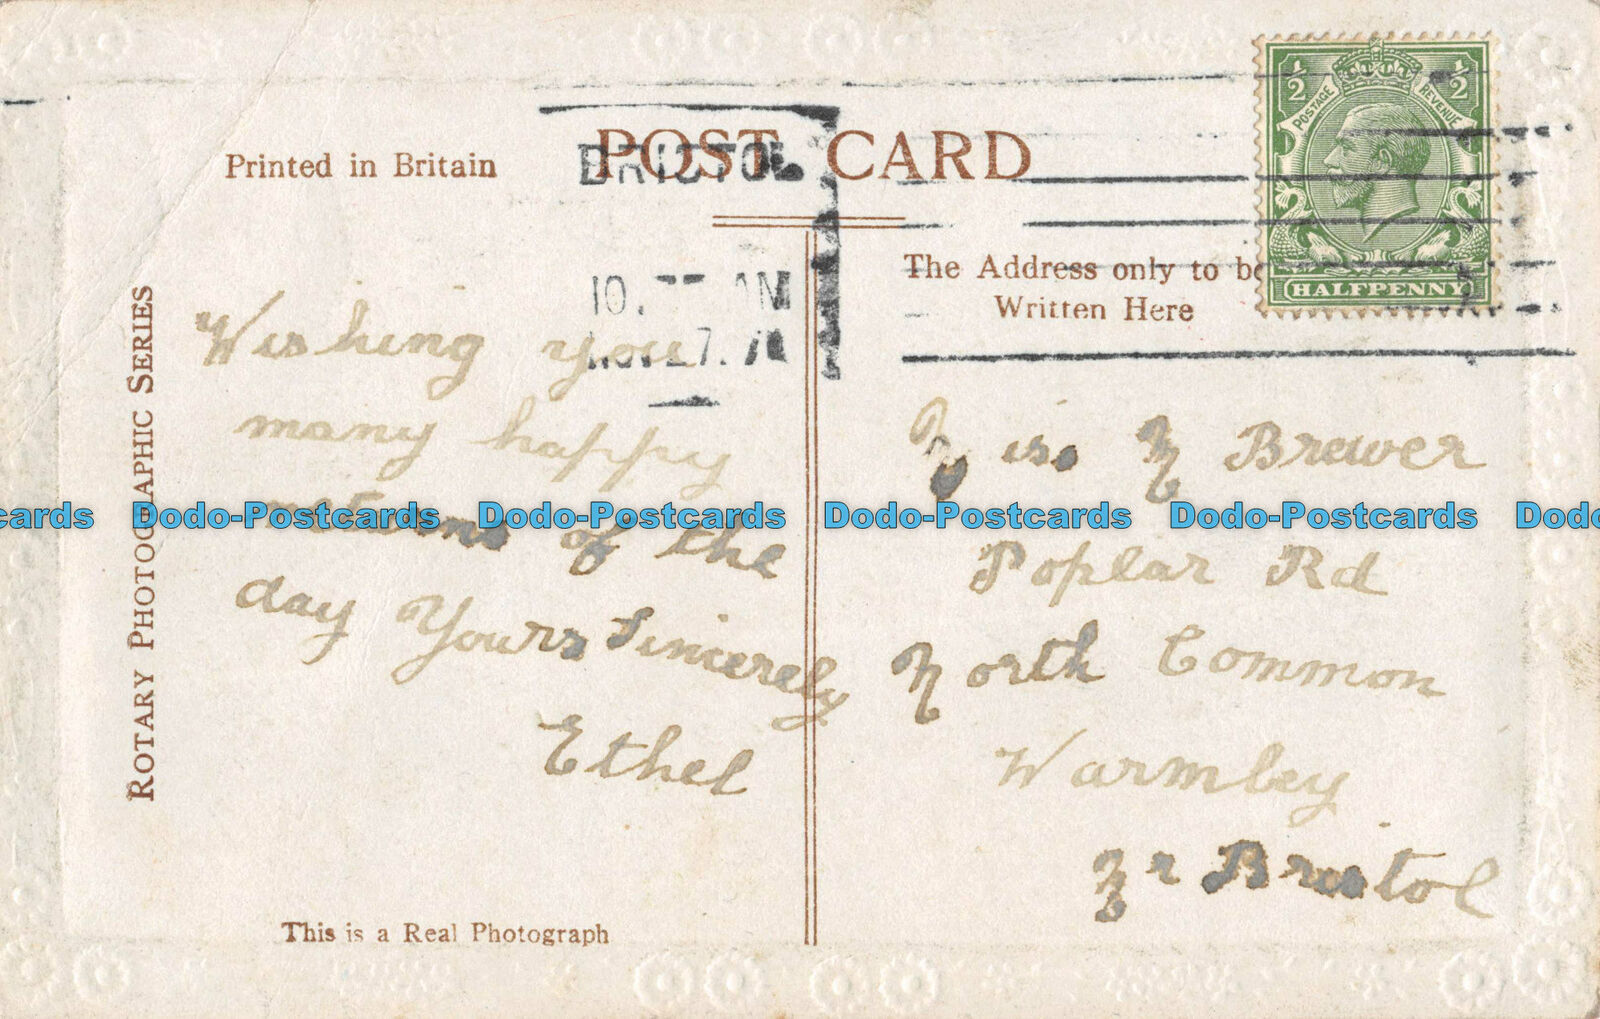 POST CARD
Printed in Britain
BRISTOL
The Address only to be
Written Here
10. AM
NOV 27.
½ ½
POSTAGE REVENUE
HALFPENNY
ROTARY PHOTOGRAPHIC SERIES
Wishing you
many happy
returns of the
day Yours Sincerely
Ethel
Miss M Brewer
Poplar Rd
North Common
Warmley
Nr Bristol
This is a Real Photograph
cards Dodo-Postcards Dodo-Postcards Dodo-Postcards Dodo-Postcards Dodo